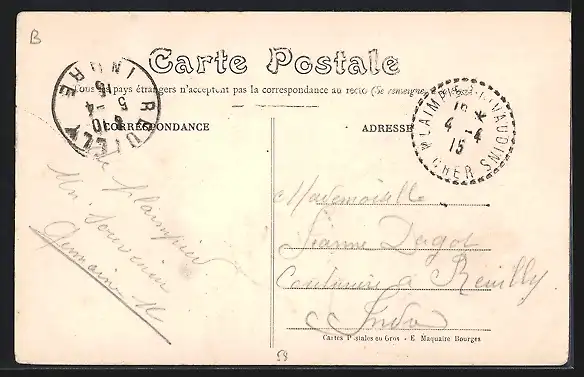 B
Carte Postale
Tous les pays étrangers n'acceptent pas la correspondance au recto (Se renseigner
CORRESPONDANCE
ADRESSE
REUILLY
INDRE
5 -4
15
16 *
4 -4
15
CHER
Un souvenir
Germaine M
Mademoiselle
Jeanne Dagot
Couturière à Reuilly
Indre
Cartes Postales en Gros - E. Maquaire Bourges
59